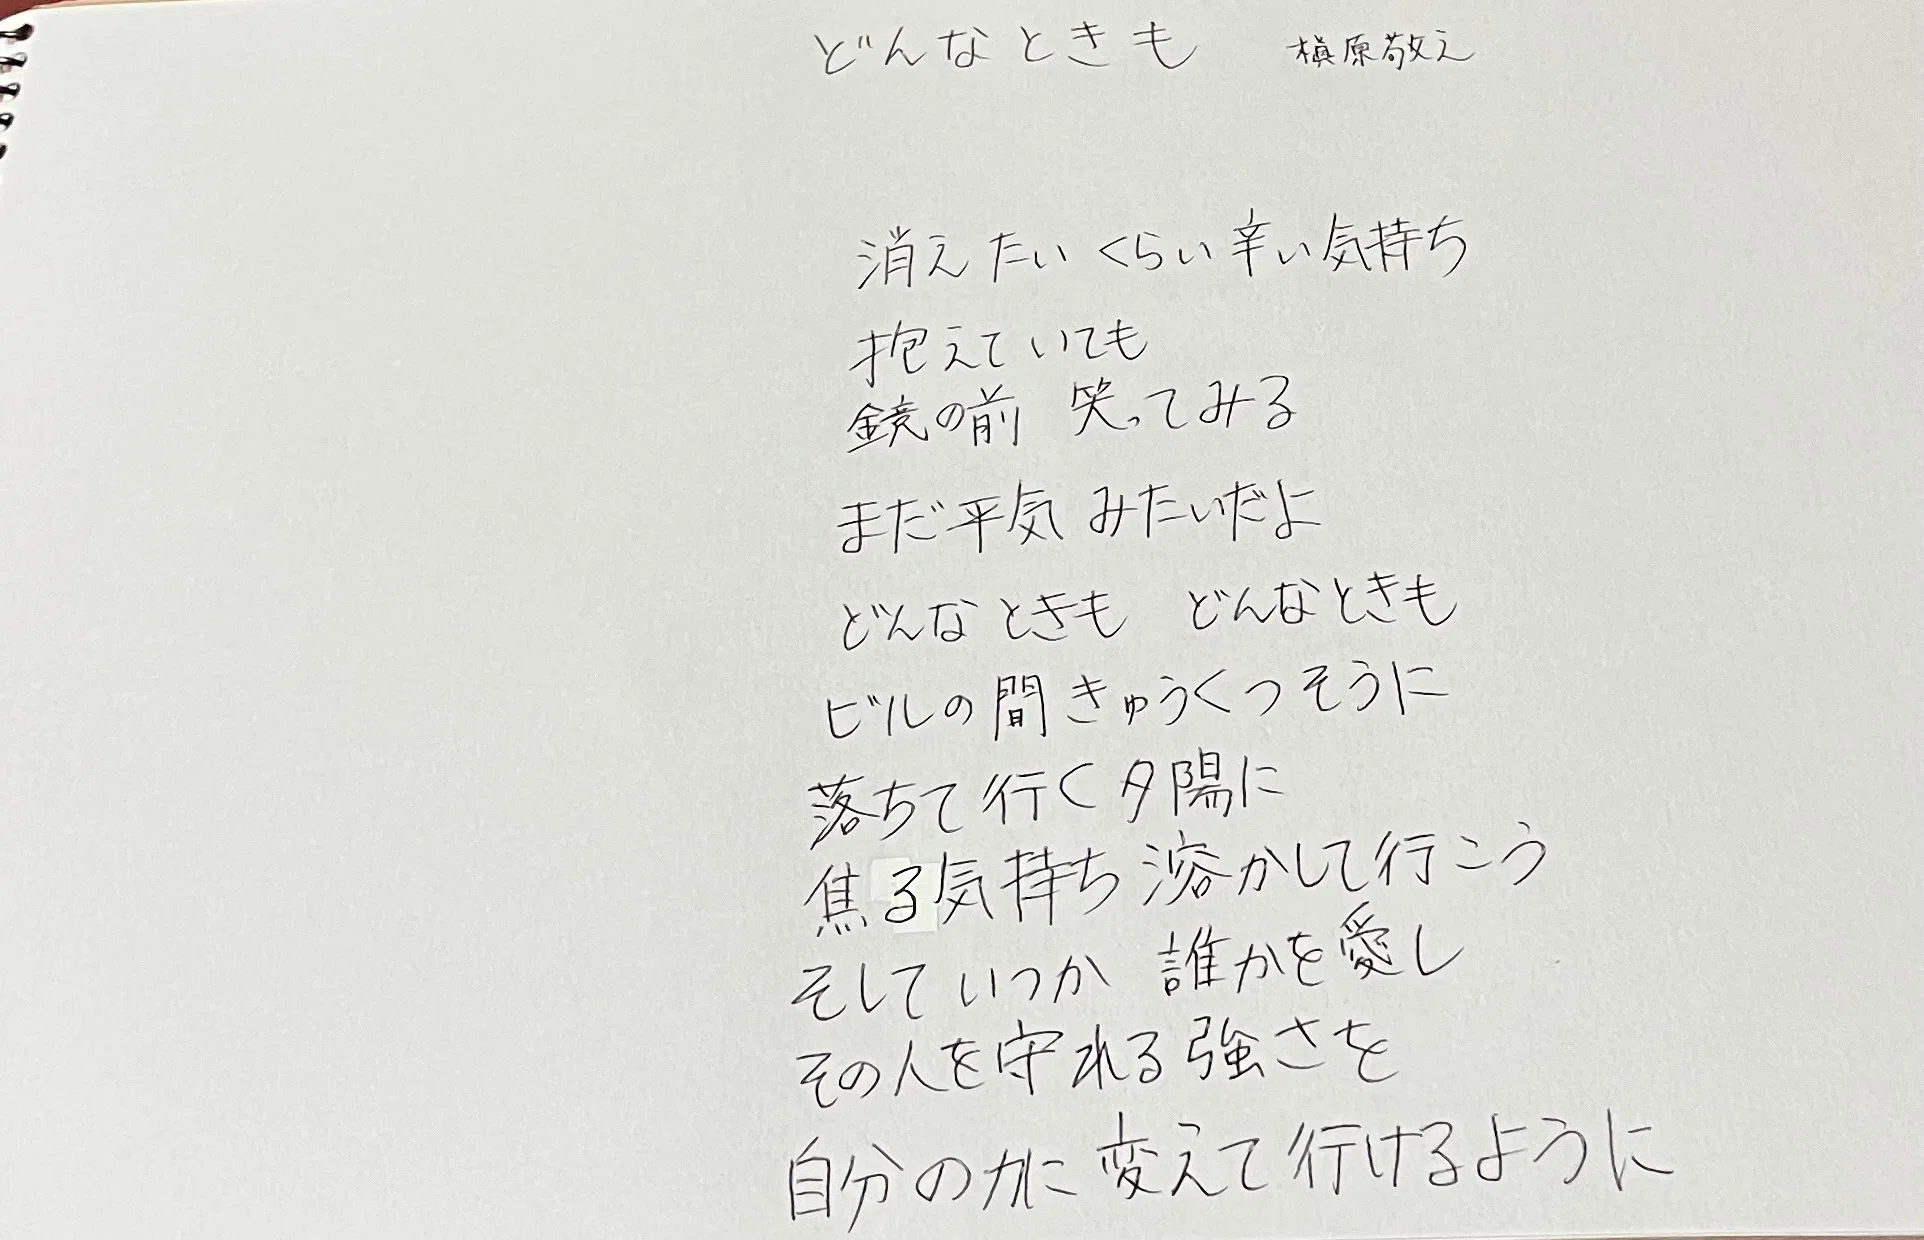 どんなときも 槇原敬之
消えたいくらい辛い気持ち
抱えていても
鏡の前 笑ってみる
まだ平気みたいだよ
どんなときも どんなときも
ビルの間きゅうくつそうに
落ちて行く夕陽に
焦る気持ち溶かして行こう
そしていつか 誰かを愛し
その人を守れる強さを
自分の力に変えて行けるように